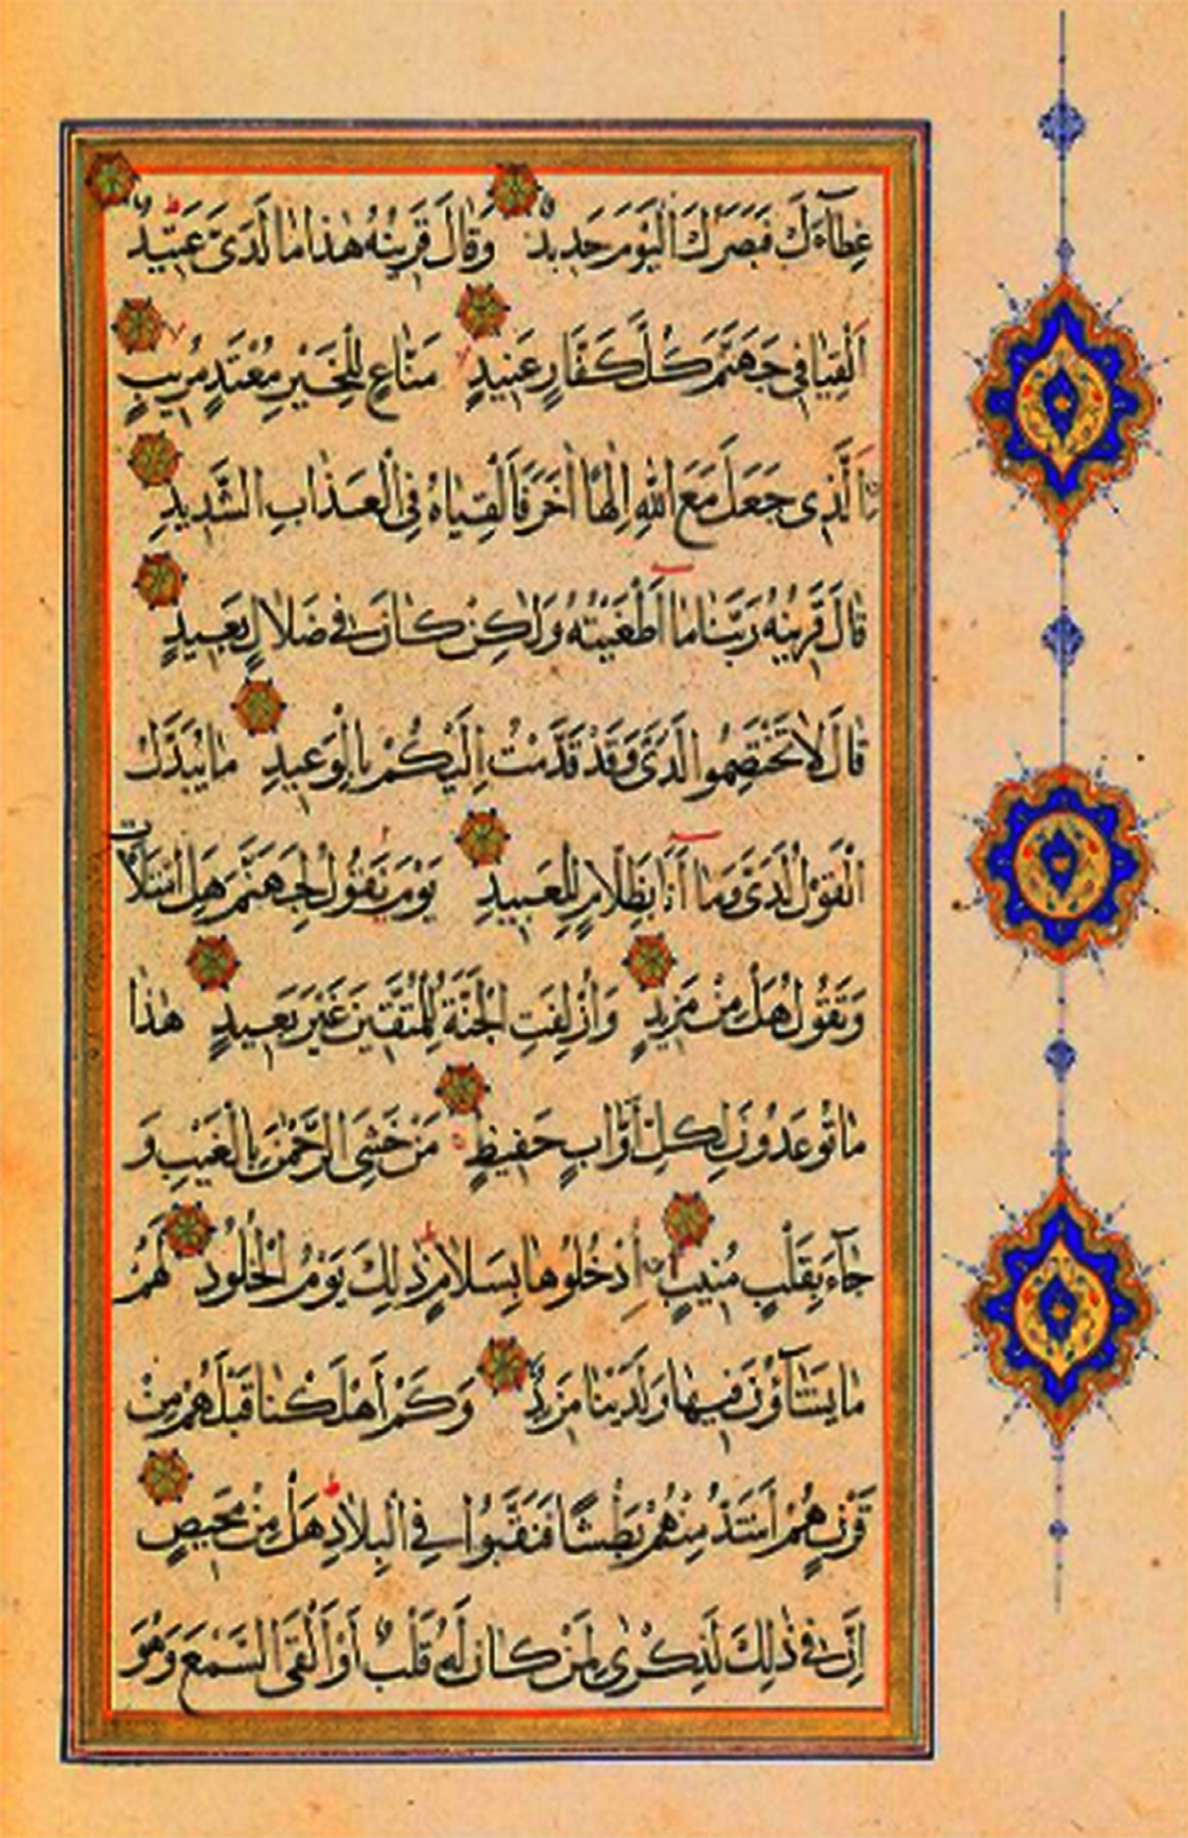 غِطَآءَكَ فَبَصَرُكَ الْيَوْمَ حَدِيدٌ وَقَالَ قَرِينُهُ هٰذَا مَا لَدَىَّ عَتِيدٌ
اَلْقِيَا فِى جَهَنَّمَ كُلَّ كَفَّارٍ عَنِيدٍ مَنَّاعٍ لِلْخَيْرِ مُعْتَدٍ مُرِيبٍ
اَلَّذِى جَعَلَ مَعَ اللّٰهِ اِلٰهًا اٰخَرَ فَاَلْقِيَاهُ فِى الْعَذَابِ الشَّدِيدِ
قَالَ قَرِينُهُ رَبَّنَا مَا اَطْغَيْتُهُ وَلٰكِنْ كَانَ فِى ضَلَالٍ بَعِيدٍ
قَالَ لَا تَخْتَصِمُوا لَدَىَّ وَقَدْ قَدَّمْتُ اِلَيْكُمْ بِالْوَعِيدِ مَا يُبَدَّلُ
الْقَوْلُ لَدَىَّ وَمَا اَنَا بِظَلَّامٍ لِلْعَبِيدِ يَوْمَ نَقُولُ لِجَهَنَّمَ هَلِ امْتَلَاْتِ
وَتَقُولُ هَلْ مِنْ مَزِيدٍ وَاُزْلِفَتِ الْجَنَّةُ لِلْمُتَّقِينَ غَيْرَ بَعِيدٍ هٰذَا
مَا تُوعَدُونَ لِكُلِّ اَوَّابٍ حَفِيظٍ مَنْ خَشِىَ الرَّحْمٰنَ بِالْغَيْبِ وَ
جَآءَ بِقَلْبٍ مُنِيبٍ اُدْخُلُوهَا بِسَلَامٍ ذٰلِكَ يَوْمُ الْخُلُودِ لَهُمْ
مَا يَشَآؤُنَ فِيهَا وَلَدَيْنَا مَزِيدٌ وَكَمْ اَهْلَكْنَا قَبْلَهُمْ مِنْ
قَرْنٍ هُمْ اَشَدُّ مِنْهُمْ بَطْشًا فَنَقَّبُوا فِى الْبِلَادِ هَلْ مِنْ مَحِيصٍ
اِنَّ فِى ذٰلِكَ لَذِكْرٰى لِمَنْ كَانَ لَهُ قَلْبٌ اَوْ اَلْقَى السَّمْعَ وَهُوَ